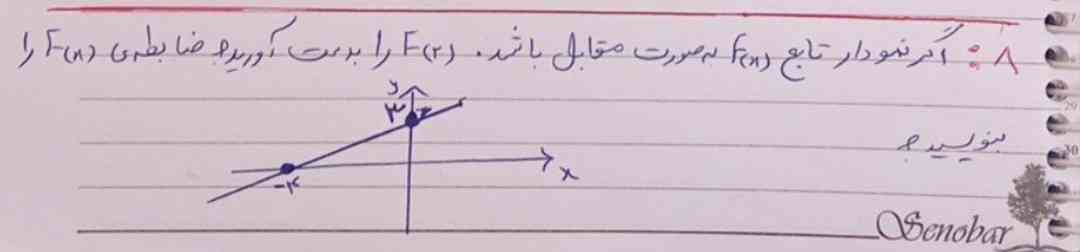 ۸: اگر نمودار تابع F(x) بصورت مقابل باشد. F(۲) را بدست آورید و ضابطه‌ی F(x) را
بنویسید؟
y
۳
x
-۴
Senobar